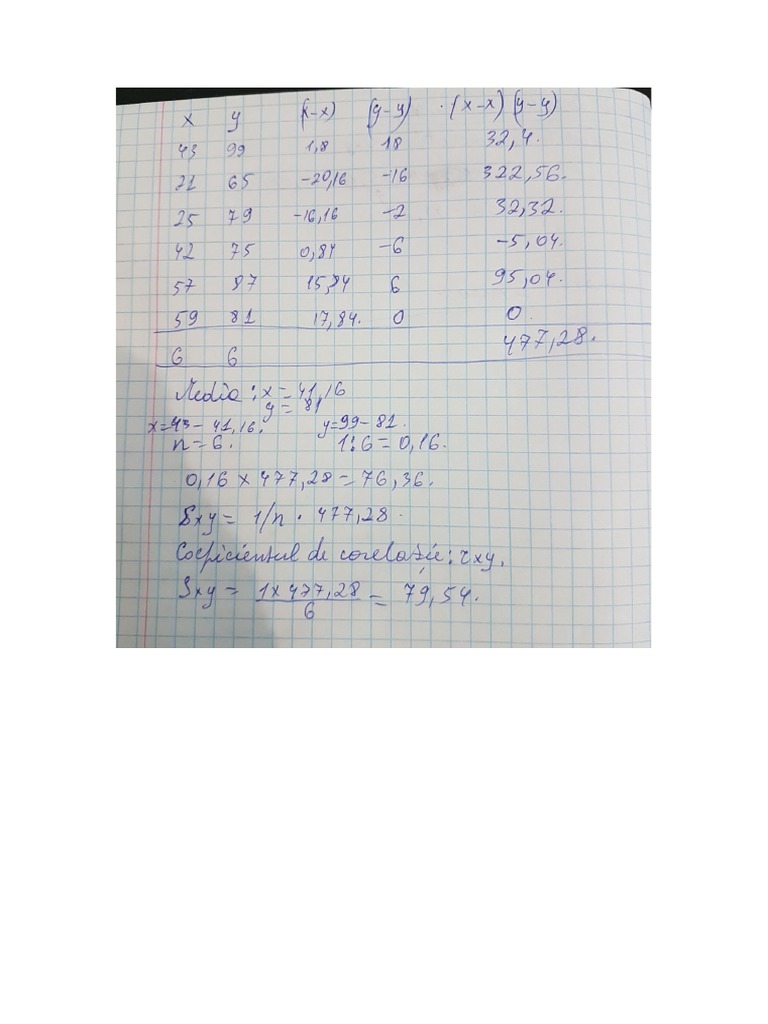 x y (x-x) (y-y) (x-x) (y-y)
43 99 1,8 18 32,4.
21 65 -20,16 -16 322,56.
25 79 -16,16 -2 32,32.
42 75 0,84 -6 -5,04.
57 87 15,84 6 95,04.
59 81 17,84. 0 0.
6 6 477,28.
Media: x = 41,16
y = 81
x=43-41,16. y=99-81.
n=6. 1:6=0,16.
0,16 x 477,28 = 76,36.
Sxy = 1/n · 477,28.
Coeficientul de corelație: rxy.
Sxy = 1x477,28 / 6 = 79,54.